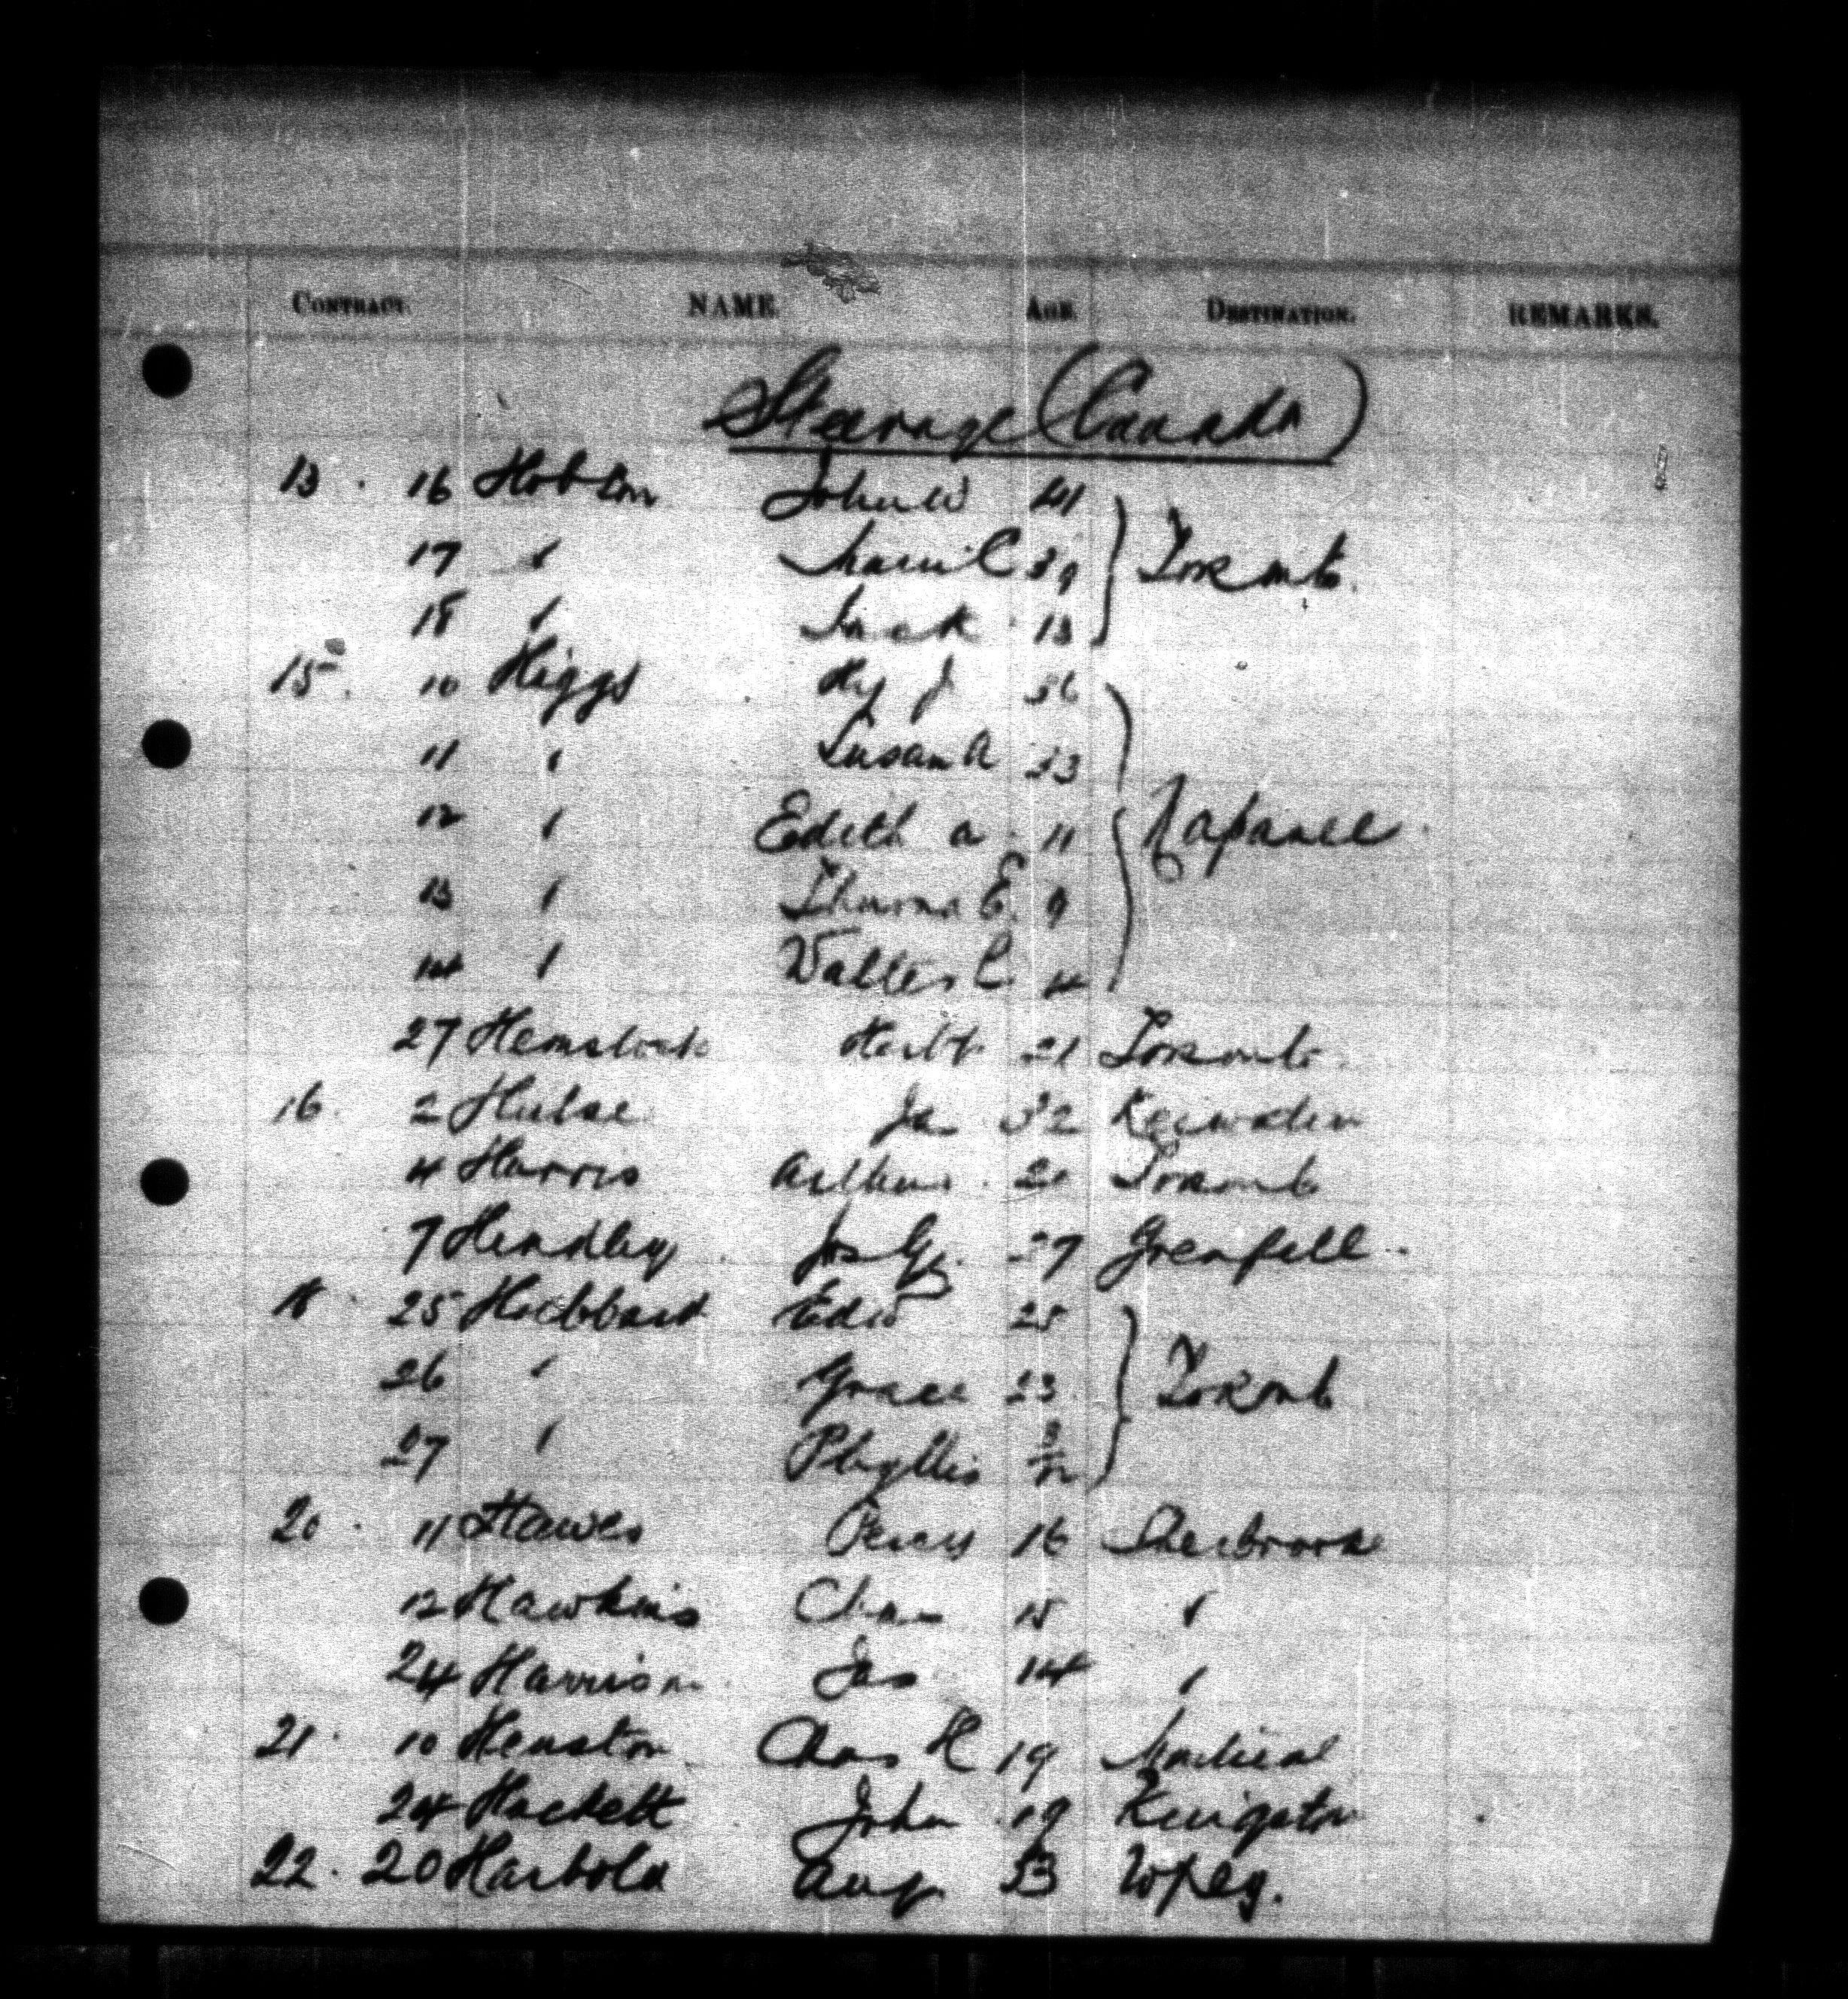 CONTRACT. NAME. AGE. DESTINATION. REMARKS.
Steerage (Canada)
13 . 16 Hobson John W 41
17 " 39 Toronto.
18 " Jack 13
15 . 10 Higgs Hy J 36
11 " Susan A 33
12 " Edith A 11 Napanee
13 " E. 9
14 " Walter C. 4
27 Herbt 21 Toronto.
16 . 2 Hulse Jas 32 Keewatin
4 Harris Arthur 20 Toronto
7 Hendley Jos Geo. 27 Grenfell
18 . 25 Hubbard Edw 25
26 " Grace 23 Toronto
27 " Phyllis 3/12
20 . 11 Hawes Percy 16 Sherbrooke
12 Hawkins Chas 15 "
24 Harrison Jas 14 "
21 . 10 Chas H 19
24 Hackett John 19 Kingston
22 . 20 Harbold Aug 23 Wpeg.